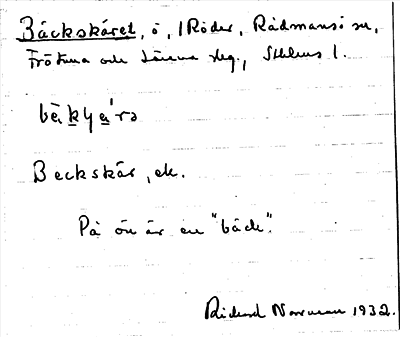 Bäckskäret, ö, / Röder, Rådmansö sn,
Frötuna och Länna slg., Sthlms l.
Beckskär, ek.
På ön är en "bäck".
Rickard Norrman 1932.